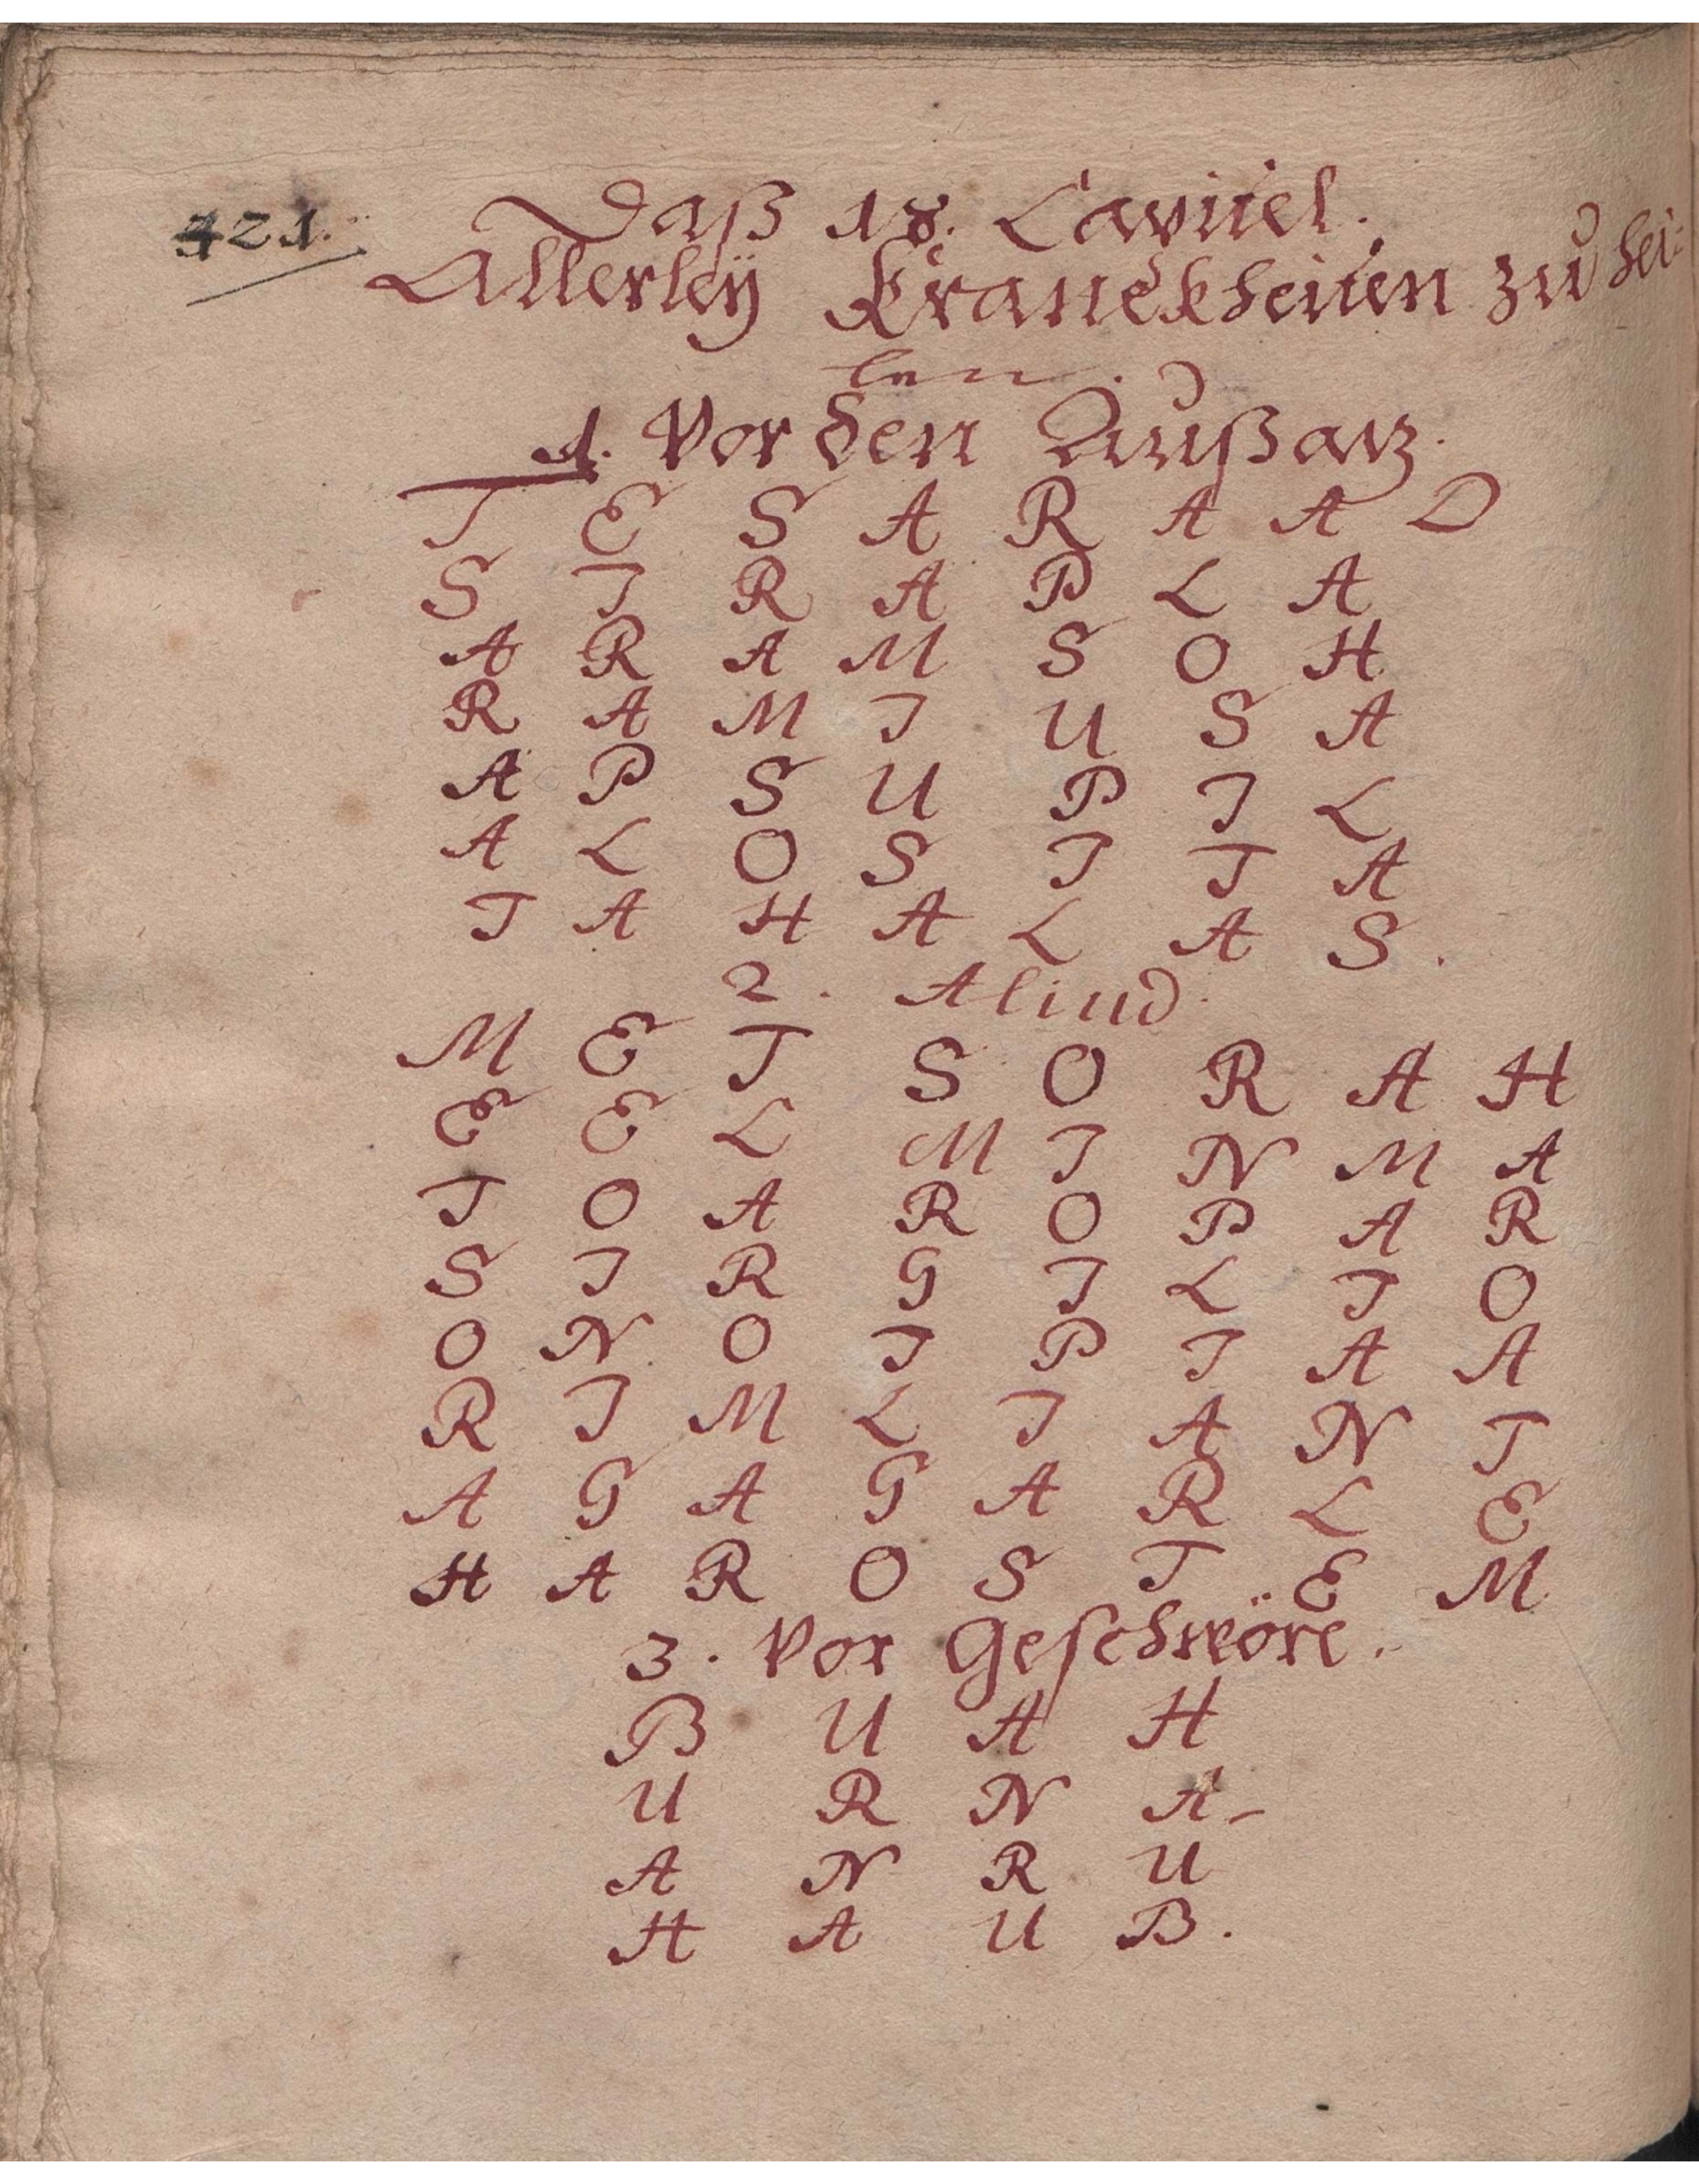 421.
Daß 18. Capittel.
Allerleÿ Kranckheiten zu hei-
len.
1. Vor den Außatz.
T E S A R A A D
S I R A P L A
A R A M S O H
R A M I U S A
A P S U P I L
A L O S I T A
T A H A L A S.
2. Aliud.
M E T S O R A H
E E L M I N M A
T O A R O P A R
S I R G I L I O
O N O I P I A A
R I M L I A N T
A G A G A R L E
H A R O S T E M
3. Vor Geschwöre.
B U A H
U R N A-
A N R U
H A U B.